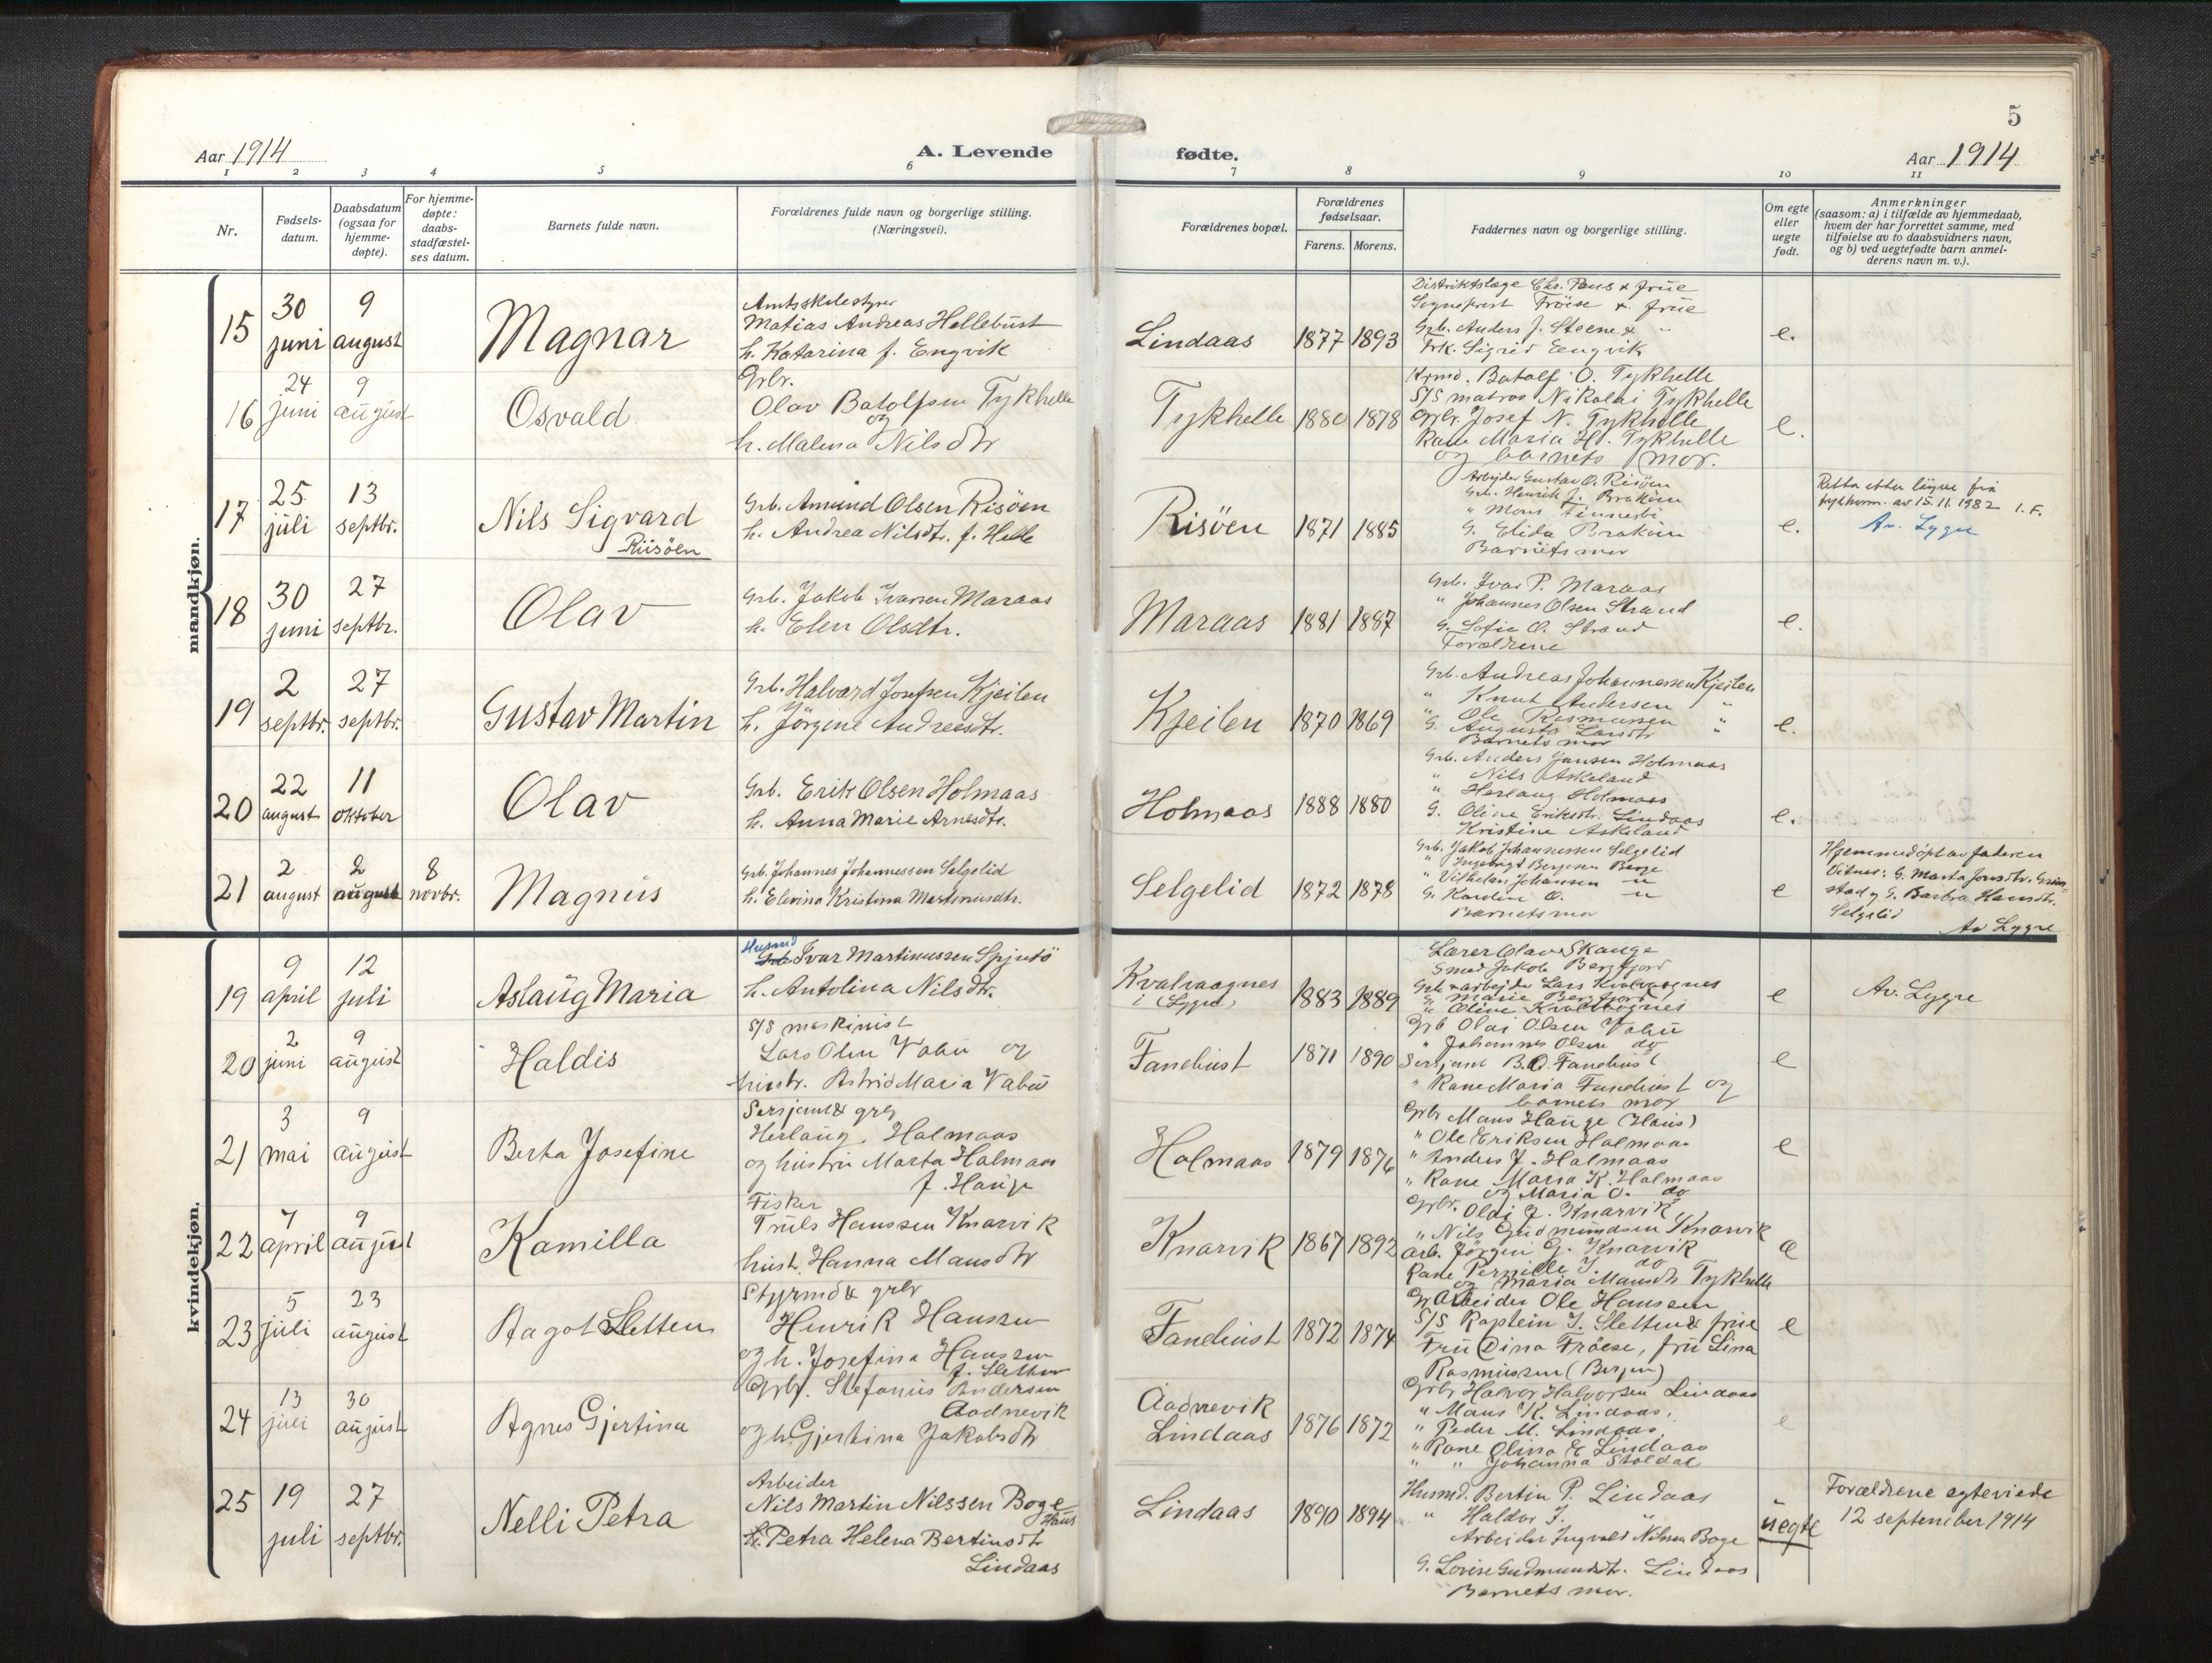 5
Aar 1914
A. Levende
fødte.
Aar 1914
1 2 3 4 5 6 7 8 9 10 11
Nr.
Fødsels-
datum.
Daabsdatum
(ogsaa for
hjemme-
døpte).
For hjemme-
døpte:
daabs-
stadfæstel-
ses datum.
Barnets fulde navn.
Forældrenes fulde navn og borgerlige stilling.
(Næringsvei).
Forældrenes bopæl.
Forældrenes
fødselsaar.
Farens. Morens.
Faddernes navn og borgerlige stilling.
Om egte
eller
uegte
født.
Anmerkninger
(saasom: a) i tilfælde av hjemmedaab,
hvem der har forrettet samme, med
tilføielse av to daabsvidners navn,
og b) ved uegtefødte barn anmel-
derens navn m. v.).
mandkjøn.
15
30
juni
9
august
Magnar
Amtsskolestyrer
Matias Andreas Hellebust
h. Katarina f. Engvik
Lindaas
1877 1893
Distriktslæge Chr. Paus & frue
Sogneprest Fröise & frue
Grb. Anders J. Steene & "
Frk. Sigrid Eengvik
e.
16
24
juni
9
august
Osvald
Grbr.
Olav Batolfsen Tykhelle
og
h. Malena Nilsdtr
Tykhelle
1880 1878
Krmd. Batolf O. Tykhelle
S/S matros Nikolai Tykhelle
Grbr. Josef N. Tykhelle
Kone Maria H. Tykhelle
og barnets mor.
e.
17
25
juli
13
septbr.
Nils Sigvard
Riisöen
Grb. Amund Olsen Risöen
h. Andrea Nilsdtr. f. Helle
Risöen
1871 1885
Arbeider Gustav O. Risöen
Grb. Henrik J. Braköen
" Mons Finnesbö
G. Elida Braköen
Barnets mor
e.
Retta etter løyve frå
fylkesm. av 15.11.1982 I.F.
Av. Lygre
18
30
juni
27
septbr.
Olav
Grb. Jakob Ivarsen Maraas
h. Elen Olsdtr.
Maraas
1881 1887
Grb. Ivar P. Maraas
" Johannes Olsen Strand
G. Sofie O. Strand
Forældrene
e.
19
2
septbr.
27
septbr.
Gustav Martin
Grb. Halvard Josefsen Kjeilen
h. Jörgine Andreasdtr.
Kjeilen
1870 1869
Grb. Andreas Johannessen Kjeilen
" Knut Andersen "
" Ole Rasmussen "
G. Augusta Larsdtr "
Barnets mor
e.
20
22
august
11
oktober
Olav
Grb. Erik Olsen Holmaas
h. Anna Marie Arnesdtr.
Holmaas
1888 1880
Grb. Anders Jansen Holmaas
" Nils Askeland
" Herlaug Holmaas
G. Oline Eriksdtr. Lindaas
Kristine Askeland
e.
21
2
august
2
august
8
novbr.
Magnus
Grb. Johannes Johannessen Selgelid
h. Elevina Kristina Martinusdtr.
Selgelid
1872 1878
Grb. Jakob Johannessen Selgelid
" Ingebrigt Bergesen Berge
" Vilhelm Johansen "
G. Karoline O. "
Barnets mor
e
Hjemmedöpt av faderen
Vitner: G. Marta Jonsdtr. Grim-
stad og G. Barbra Hansdtr.
Selgelid
Av Lygre
kvindekjøn.
19
9
april
12
juli
Aslaug Maria
Husmd
Grb. Ivar Martinussen Spjutö
h. Antolina Nilsdtr.
Kvalvaagnes
i (Lygre)
1883 1889
Lærer Olav Skauge
Smed Jakob Bergfjord
Grb & arbeider Lars Kvalvaagnes
G. Marie Bergfjord
" Oline Kvalvaagnes
e
Av. Lygre
20
2
juni
9
august
Haldis
S/S maskinist
Lars Olsen Vabö og
hustr. Astrid Maria Vabö
Fanebust
1871 1890
Grb Olai Olsen Vabö
" Johannes Olsen do
Serjant B. O. Fanebust
" Kone Maria Fanebust og
barnets mor
e
21
3
mai
9
august
Berta Josefine
Sersjant & grbr
Herlaug Holmaas
og hustru Marta Holmaas
f. Hauge
Holmaas
1879 1876
Grbr Mons Hauge (Haus)
" Ole Eriksen Holmaas
" Anders J. Holmaas
" Kone Maria K. Holmaas
og Maria O. do
e
22
7
april
9
august
Kamilla
Fisker
Truls Hanssen Knarvik
hust. Hanna Mansdtr
Knarvik
1867 1892
Grbr. Olai J. Knarvik
" Nils Gudmundsen Knarvik
Arb. Jörgen G. Knarvik
Kone Pernille J. do
og Maria Mansdtr Tykhelle
e
23
5
juli
23
august
Aagot Sletten
Styrmd & grbr
Henrik Hanssen
og h. Josefina Hanssen
f. Sletten
Fanebust
1872 1874
Arbeider Ole Hanssen
S/S Kaptein J. Sletten & frue
Fru Dina Fröise, fru Lina
Rasmussen (Bergen)
e
24
13
juli
30
august
Agnes Gjertina
Grbr. Stefanus Andersen
Aadnevik
og h. Gjertina Jakobsdtr
Aadnevik
Lindaas
1876 1872
Grbr Halvor Halvorsen Lindaas
" Mans K. Lindaas,
" Peder M. Lindaas,
" Kone Olina E Lindaas
" " Johanna Stoldal
e
25
19
juli
27
septbr.
Nelli Petra
Arbeider
Nils Martin Nilssen Boge
Haus
h. Petra Helena Bertinsdtr
Lindaas
Lindaas
1890 1894
Husmd. Bertin P. Lindaas
" Haldor J. "
Arbeider Ingvald Nilsen Boge
G. Lovise Gudmundsdtr. Lindaas
Barnets mor.
uegte
Forældrene egteviede
12 september 1914